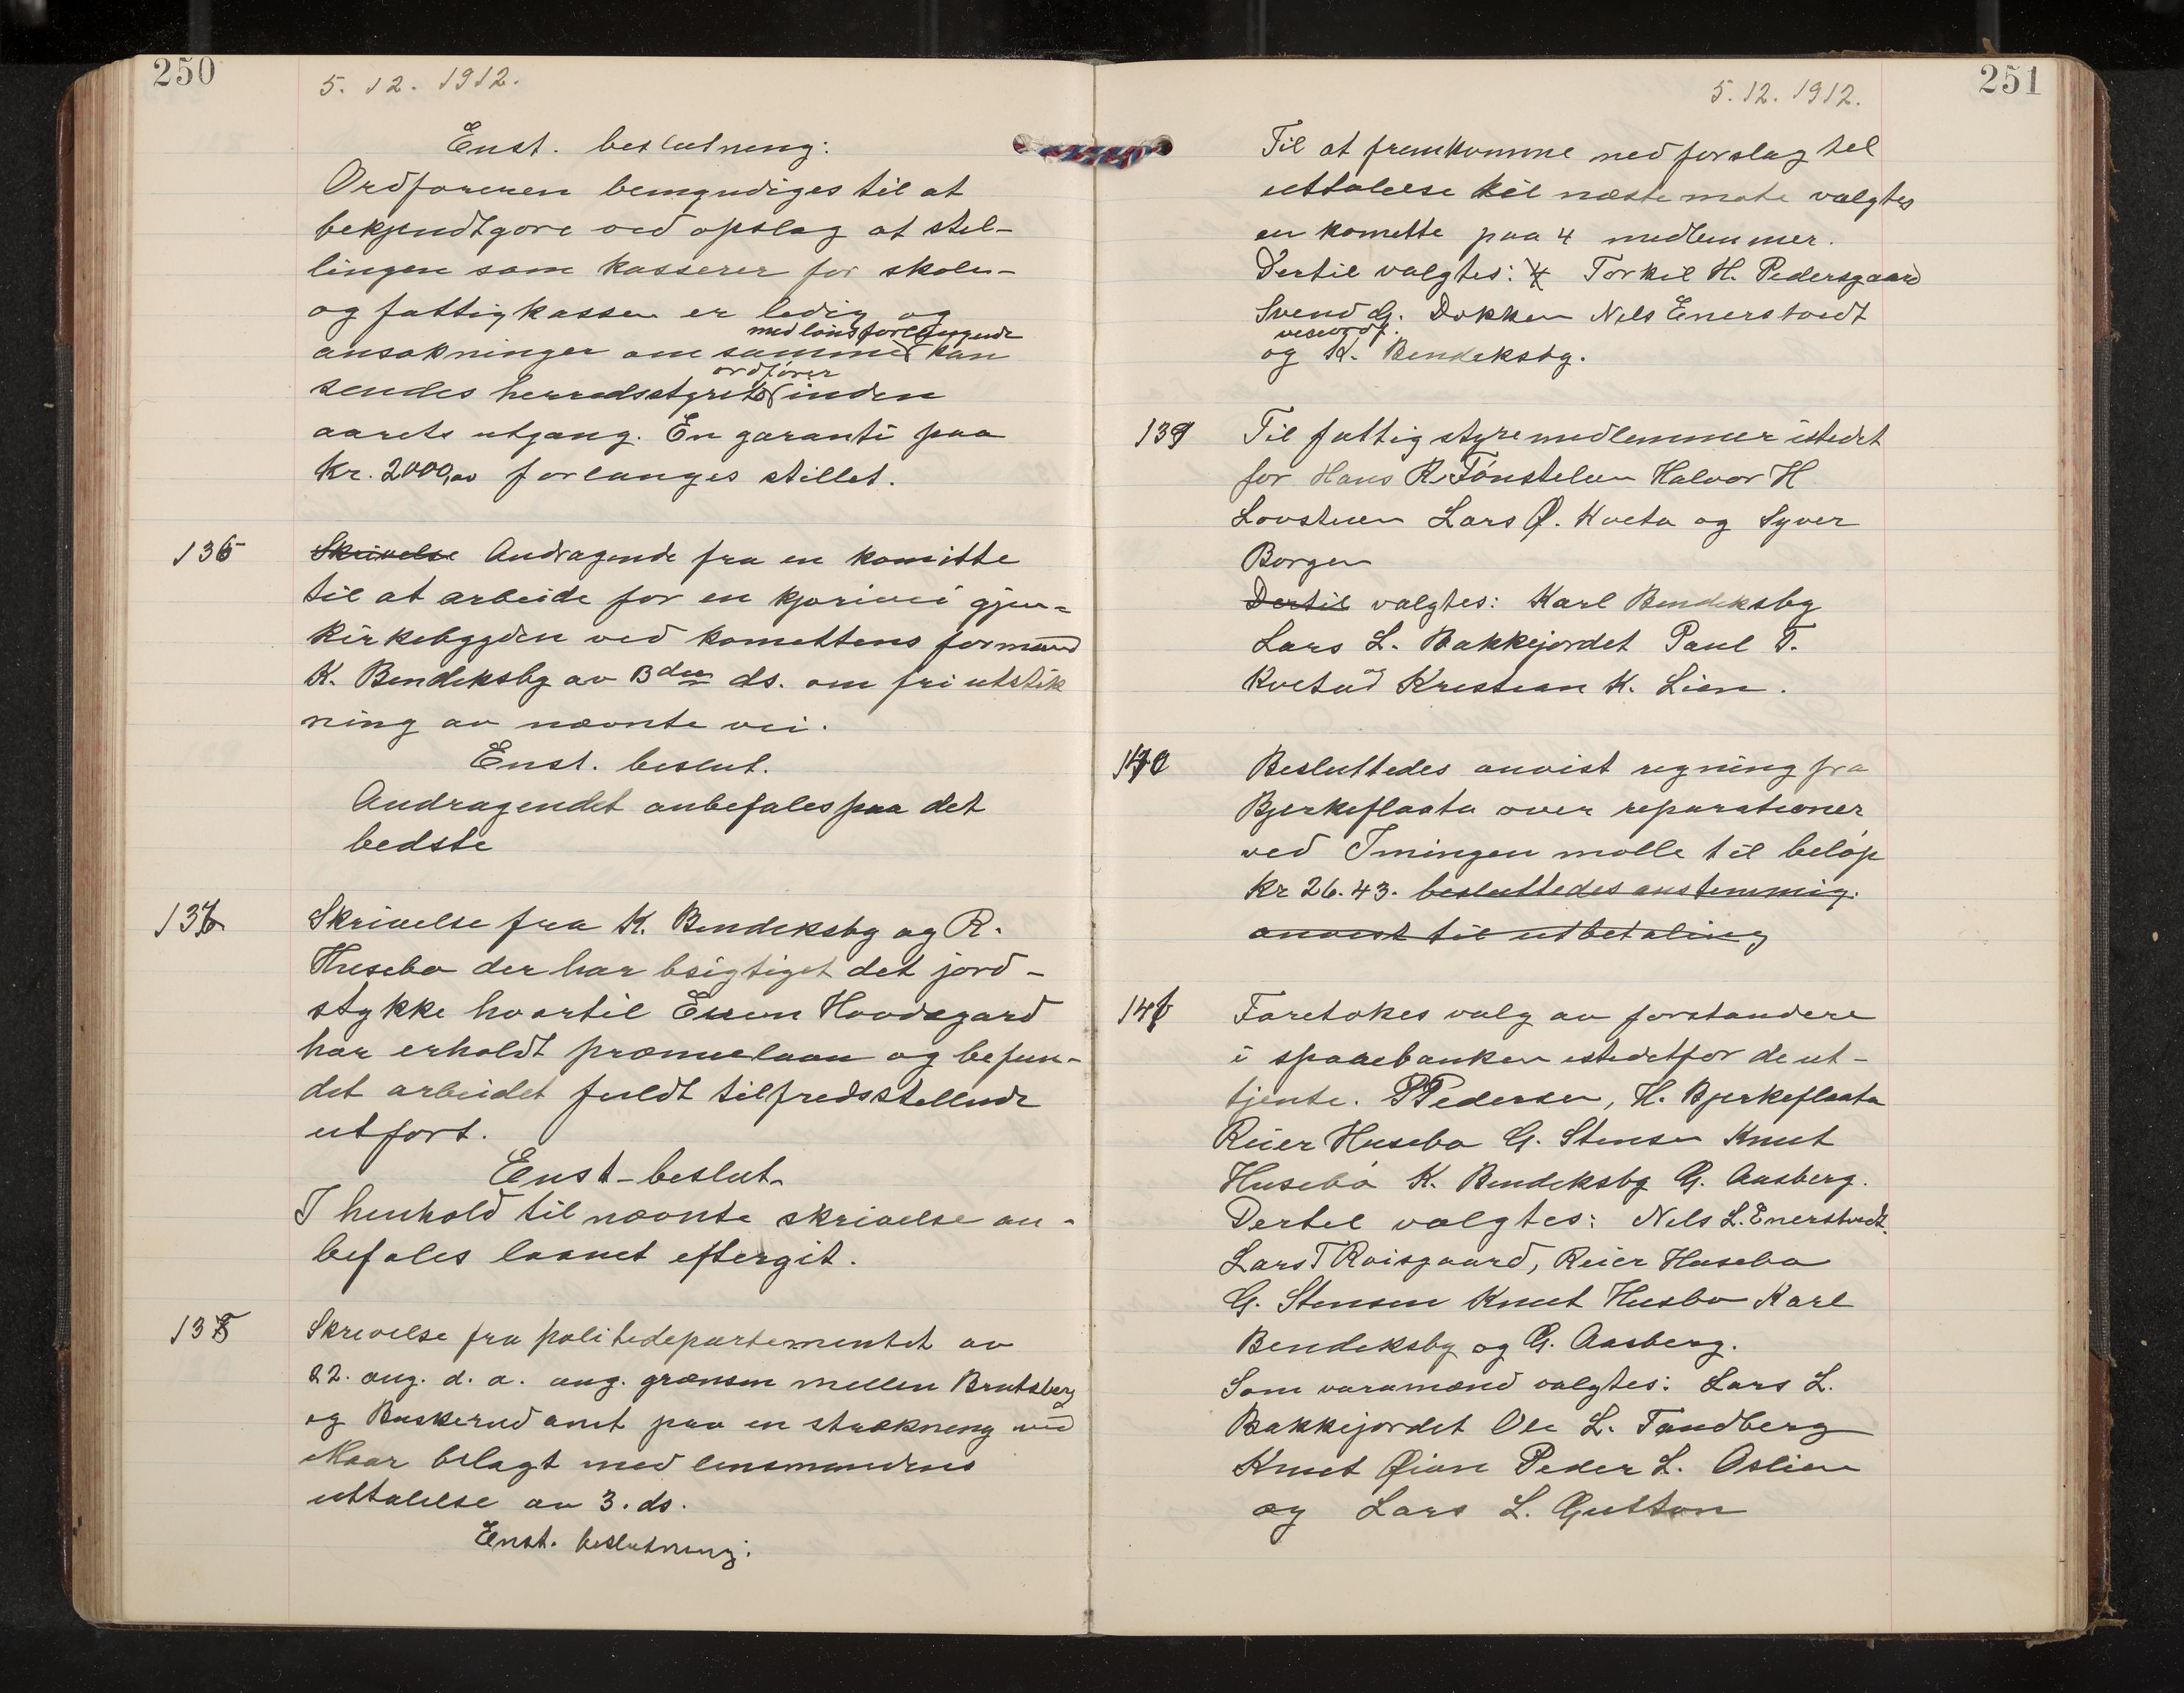 250
5. 12. 1912.
Enst. beslutning:
Ordføreren bemyndiges til at
bekjendtgøre ved opslag at stel-
lingen som kasserer for skole-
og fattigkassen er ledig og
med lønsforlangende
ansøkninger om samme kan
ordfører
sendes herredsstyrets inden
aarets utgang. En garanti paa
Kr. 2000,00 forlanges stillet.
136 Skrivelse Andragende fra en komitte
til at arbeide for en kjørivei gjen-
kirkebygden ved komettens formand
K. Bendeksby av 3den ds. om fri utstik
ning av nævnte vei.
Enst. beslut.
Andragendet anbefales paa det
bedste
137 Skrivelse fra K. Bendeksby og R.
Husebø der har bsigtiget det jord-
stykke hvortil Essen Hovdsgard
har erholdt præmielaan og befun-
det arbeidet fuldt tilfredsstellende
utført.
Enst-beslut.
I henhold til nævnte skrivelse an-
befales laanet eftergit.
138 Skrivelse fra politidepartementet av
22. aug. d. a. ang. grænsen mellem Bratsberg
og Buskerud amt paa en strækning ved
Maar bilagt med lensmandens
uttalelse av 3. ds.
Enst. beslutning:
251
5. 12. 1912.
Til at fremkomme med forslag til
uttalelse til næste møte valgtes
en komette paa 4 medlemmer.
Dertil valgtes: Torkil H. Pedersgaard
Svend G. Dokken Nils Enerstvedt
viseordf.
og K. Bendeksby.
139 Til fattigstyremedlemmer istedet
for Hans R. Tønstelien Halvor H
Lovstuen Lars Ø. Kveta og Syver
Borgen
Dertil valgtes: Karl Bendeksby
Lars L. Bakkejordet Paul T.
Kveta og Kristian K. Lien.
140 Besluttedes anvist regning fra
Bjerkeflaata over reparationer
ved Imingen mølle til beløp
Kr 26.43. besluttedes enstemmig
anvist til utbetaling
141 Foretokes valg av forstandere
i sparebanken istedetfor de ut-
tjente. P Pedersen, H. Bjerkeflaata
Reier Husebø G. Stensen Knut
Husebø K. Bendeksby G. Aasberg.
Dertil valgtes: Nils L. Enerstvedt.
Lars T Roisgaard, Reier Husebø
G. Stensen Knut Husbø Karl
Bendeksby og G. Aasberg.
Som varamænd valgtes: Lars L.
Bakkejordet Ole L. Tandberg
Knut Øian Peder L. Aslien
og Lars L. Gutton